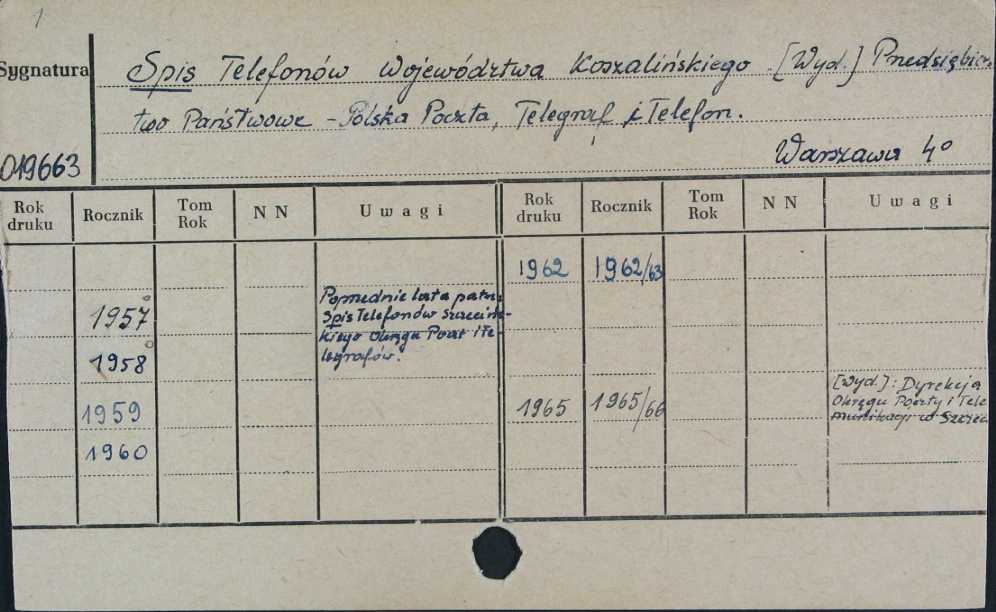 1
Sygnatura
Spis Telefonów Województwa Koszalińskiego. [Wyd.] Przedsiębiors
two Państwowe - Polska Poczta, Telegraf i Telefon.
Warszawa 4°
019663
Rok druku Rocznik Tom Rok N N Uwagi Rok druku Rocznik Tom Rok N N Uwagi
1962 1962/63
1957
Poprzednie lata patrz:
Spis Telefonów Szczeciń-
skiego Okręgu Poczt i Te-
legrafów.
1958
1959
1965 1965/66
[Wyd.]: Dyrekcja
Okręgu Poczty i Tele
munikacji w Szczec
1960